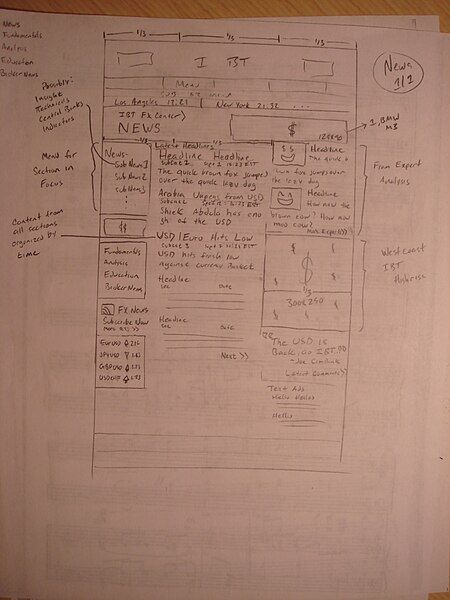 News
Fundamentals
Analysis
Education
Broker News
News
1/1
1/3
1/3
1/3
I BT
Menu
SUB OF MENU
Los Angeles 17:21 | New York 21:32 ...
IBT FX Center >
NEWS
$
1 BMW
M3
Possibly:
Insight
Technicals
Central Banks
Indicators
Menu for
Section in
Focus
Content from
all sections
organized by
time
News
Sub News 1
Sub News 2
Sub News 3
$$
Fundamentals
Analysis
Education
Broker News
FX News
Subscribe Now
EURUSD
JPYUSD
GBPUSD
USDCHF
Latest Headlines
Headline Headline
The quick brown fox jumped
over the quick lazy dog
from USD
of the USD
USD | Euro Hits Low
USD hits fresh low
against currency Basket
Headline
Sec Date
Headline
Sec Date
Next >>
Headline
The quick b
rown fox jumps over
the lazy dog
Headline
How now the
brown cow? How now
moo cow?
More Experts >>
From Expert
Analysis
$
1/3
300x250
West coast
IBT
The USD is
Back, go IBT
Latest Comments >>
Text Ads
Hello Hello
Hello